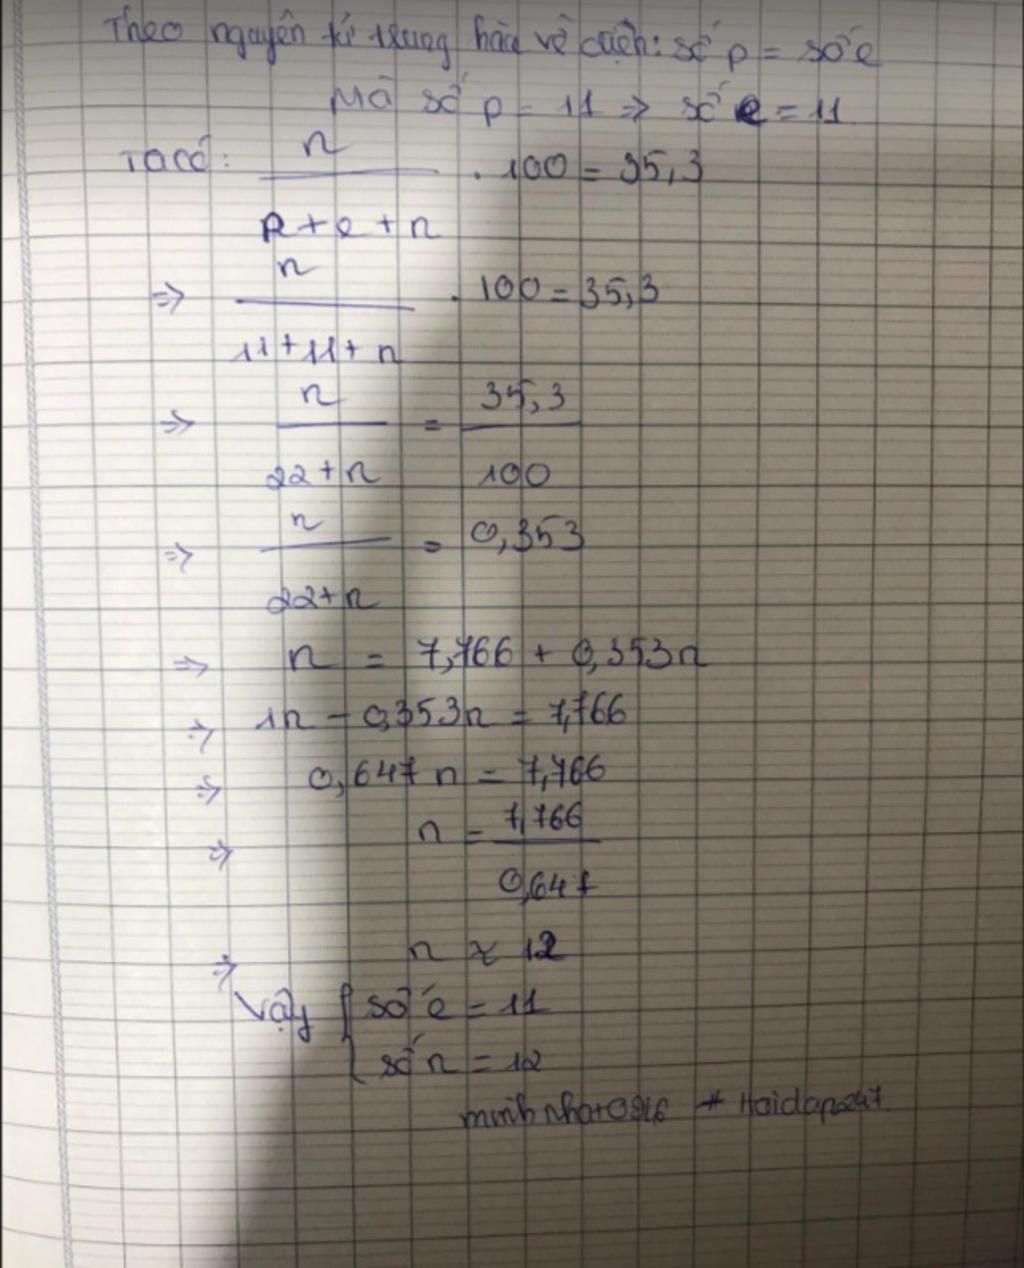 Theo nguyên lí trung hòa về điện: số p = số e
Mà số p = 11 => số e = 11
Ta có: n / (p + e + n) . 100 = 35,3
=> n / (11 + 11 + n) . 100 = 35,3
=> n / (22 + n) = 35,3 / 100
=> n / (22 + n) = 0,353
=> n = 7,766 + 0,353n
=> 1n - 0,353n = 7,766
=> 0,647 n = 7,766
=> n = 7,766 / 0,647
=> n ≈ 12
Vậy { số e = 11
số n = 12
minhnhat0916 # Hoidap247